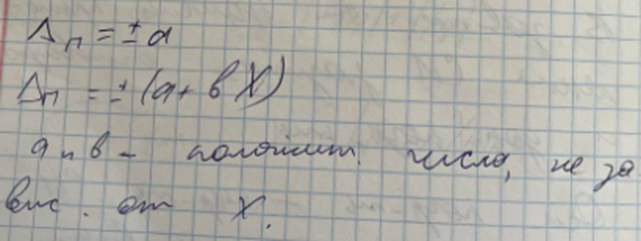 Δп = ± a
Δп = ± (a + b X)
a и b – положит. числа, не за
вис. от X.